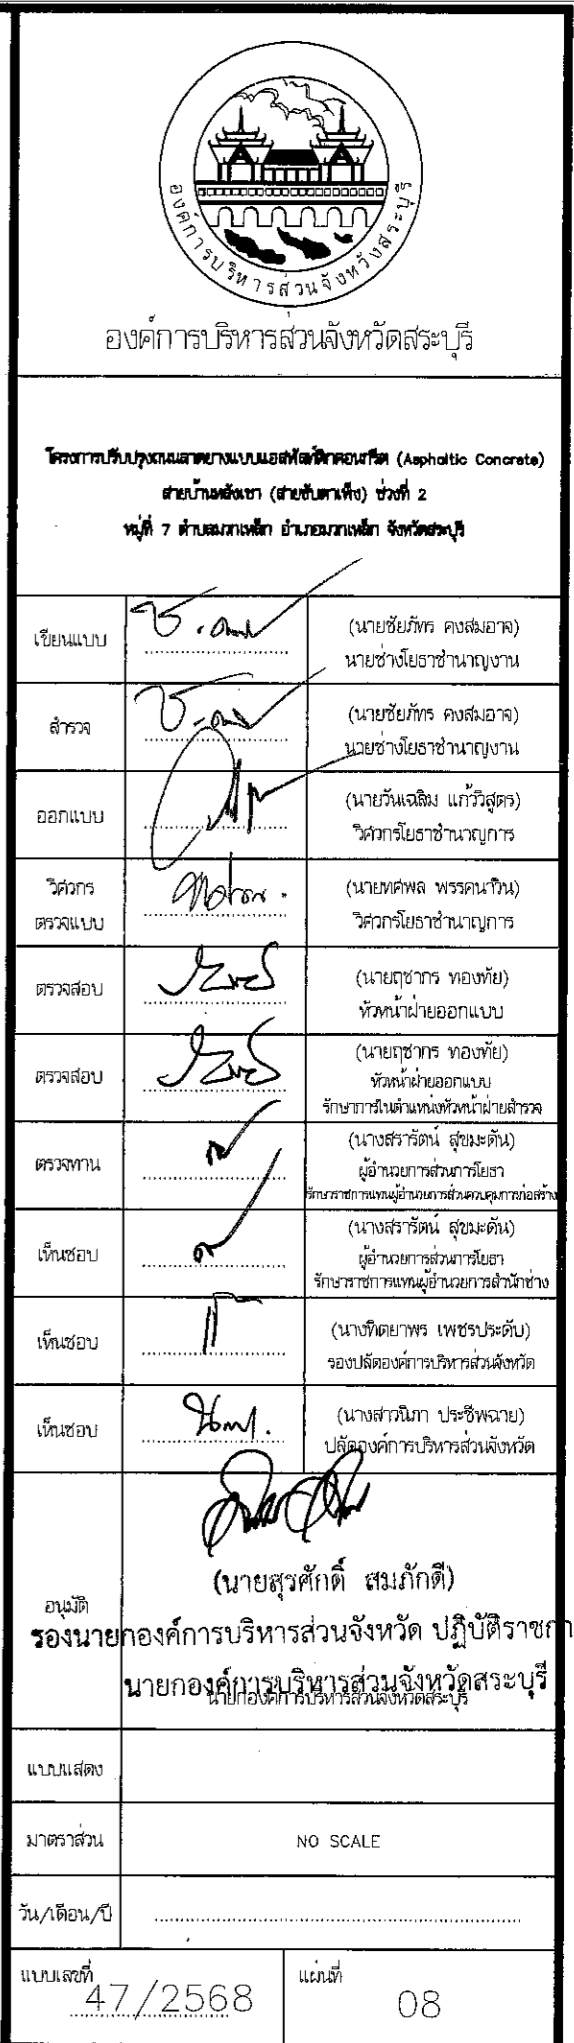 องค์การบริหารส่วนจังหวัดสระบุรี
องค์การบริหารส่วนจังหวัดสระบุรี
โครงการปรับปรุงถนนลาดยางแบบแอสฟัลท์ติกคอนกรีต (Asphaltic Concrete)
สายบ้านหลังเขา (สายซับตาเพ็ง) ช่วงที่ 2
หมู่ที่ 7 ตำบลมวกเหล็ก อำเภอมวกเหล็ก จังหวัดสระบุรี
เขียนแบบ
(นายชัยภัทร คงสมอาจ)
นายช่างโยธาชำนาญงาน
สำรวจ
(นายชัยภัทร คงสมอาจ)
นายช่างโยธาชำนาญงาน
ออกแบบ
(นายวันเฉลิม แก้ววิสูตร)
วิศวกรโยธาชำนาญการ
วิศวกร
ตรวจแบบ
(นายทศพล พรรคนาวิน)
วิศวกรโยธาชำนาญการ
ตรวจสอบ
(นายฤชากร ทองทัย)
หัวหน้าฝ่ายออกแบบ
ตรวจสอบ
(นายฤชากร ทองทัย)
หัวหน้าฝ่ายออกแบบ
รักษาการในตำแหน่งหัวหน้าฝ่ายสำรวจ
ตรวจทาน
(นางสรารัตน์ สุขมะดัน)
ผู้อำนวยการส่วนการโยธา
รักษาราชการแทนผู้อำนวยการส่วนควบคุมการก่อสร้าง
เห็นชอบ
(นางสรารัตน์ สุขมะดัน)
ผู้อำนวยการส่วนการโยธา
รักษาราชการแทนผู้อำนวยการสำนักช่าง
เห็นชอบ
(นางทิตยาพร เพชรประดับ)
รองปลัดองค์การบริหารส่วนจังหวัด
เห็นชอบ
(นางสาวนิภา ประชีพฉาย)
ปลัดองค์การบริหารส่วนจังหวัด
อนุมัติ
(นายสุรศักดิ์ สมภักดี)
รองนายกองค์การบริหารส่วนจังหวัด ปฏิบัติราชกา
นายกองค์การบริหารส่วนจังหวัดสระบุรี
นายกองค์การบริหารส่วนจังหวัดสระบุรี
แบบแสดง
มาตราส่วน
NO SCALE
วัน/เดือน/ปี
แบบเลขที่
47/2568
แผ่นที่
08